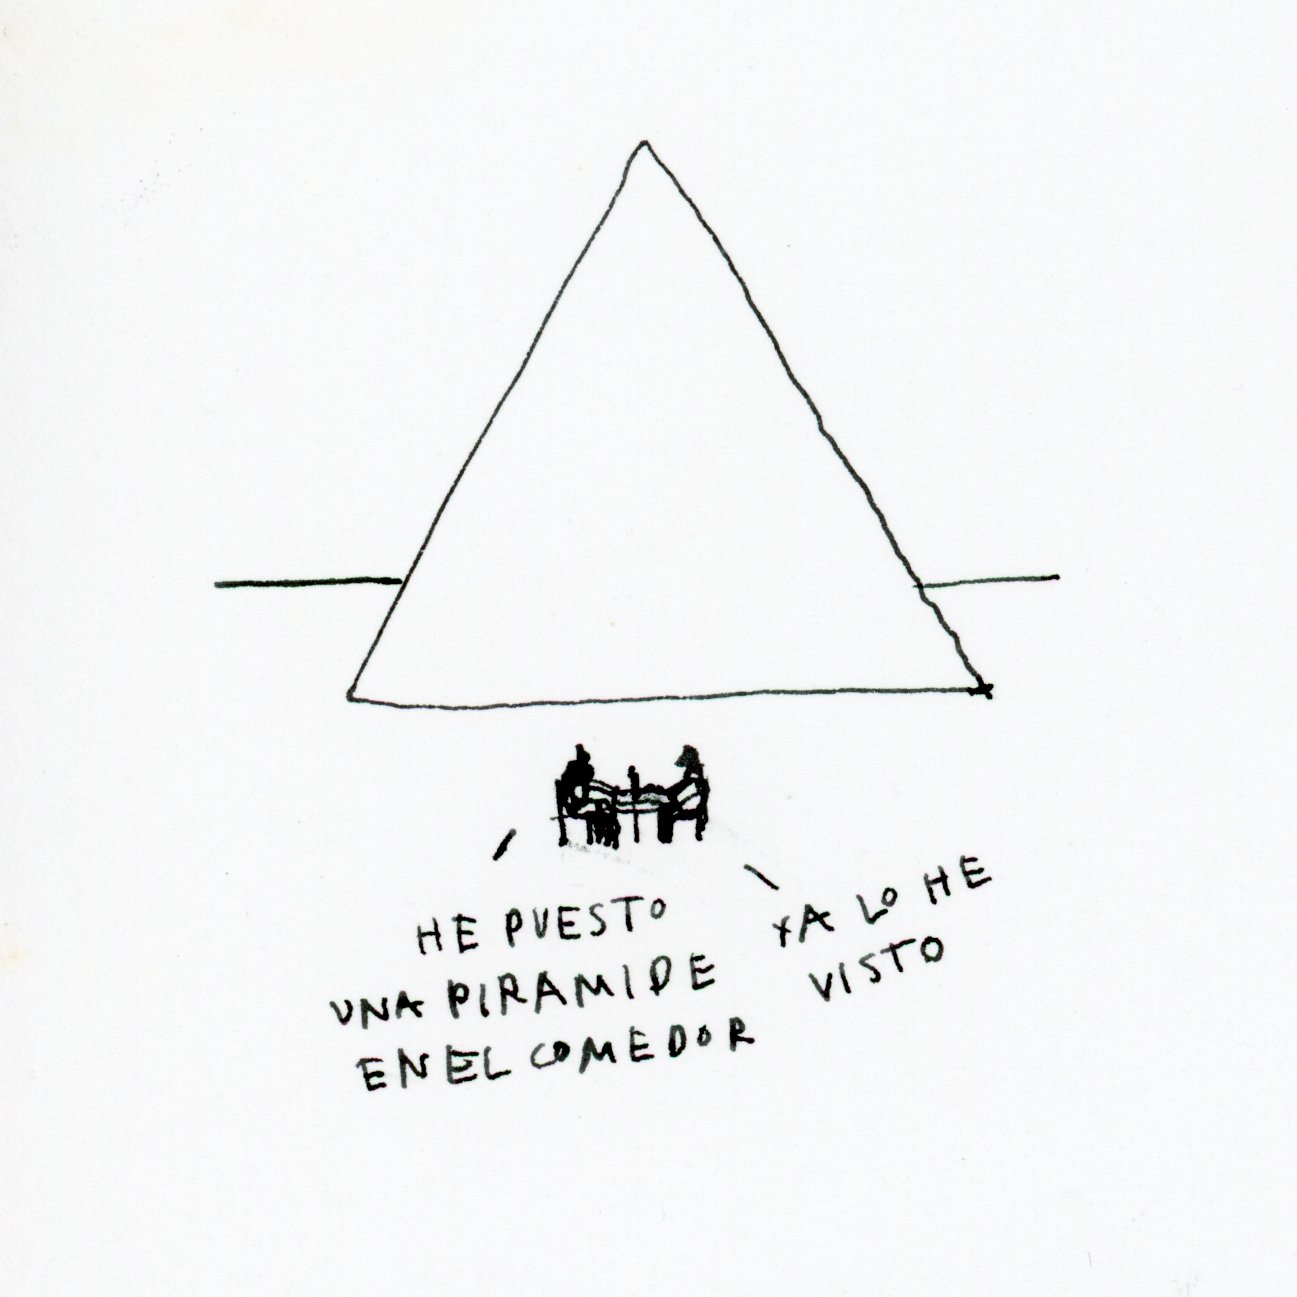 HE PUESTO
UNA PIRAMIDE
EN EL COMEDOR
YA LO HE
VISTO